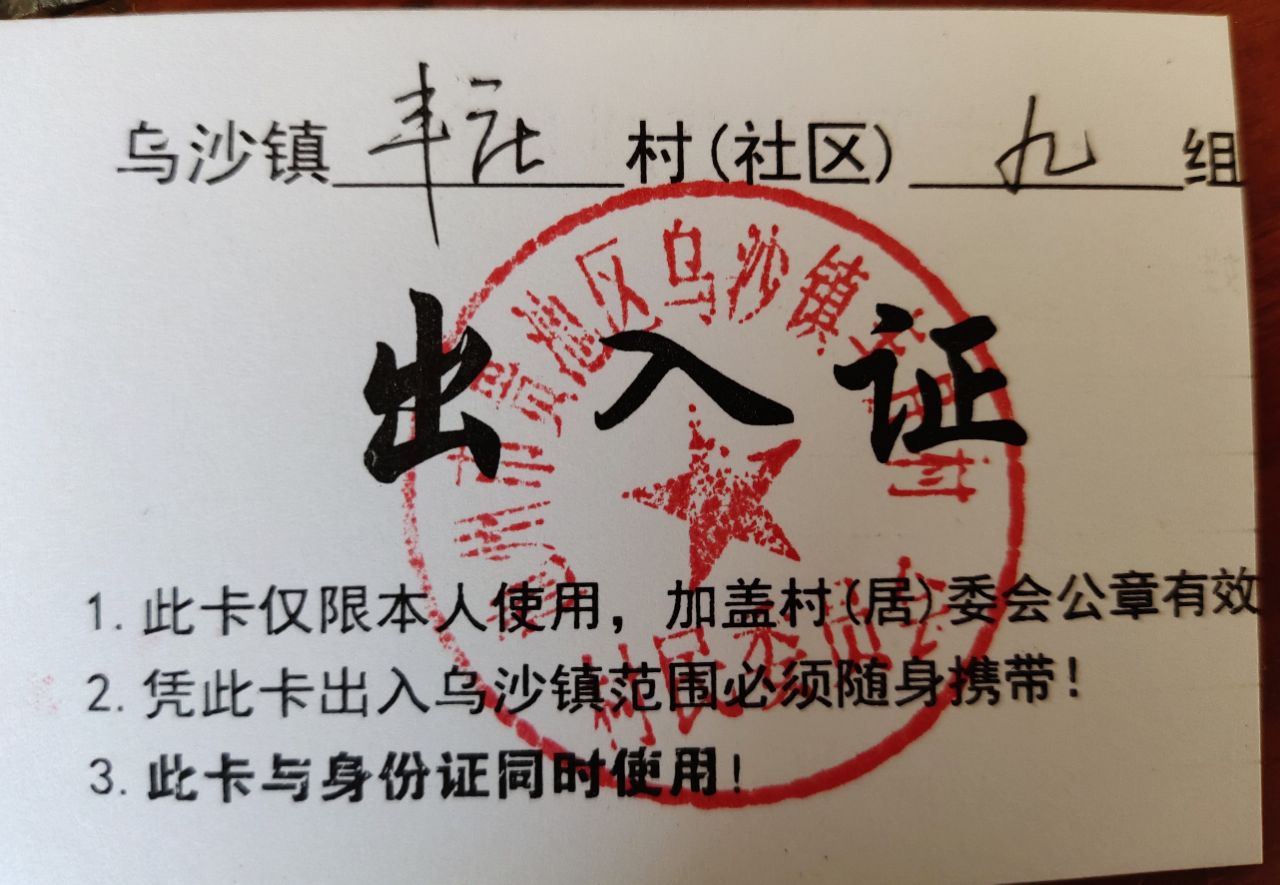 乌沙镇 丰庄 村(社区) 九 组
贵池区乌沙镇
出入证
村民委员会
1. 此卡仅限本人使用，加盖村(居)委会公章有效
2. 凭此卡出入乌沙镇范围必须随身携带！
3. 此卡与身份证同时使用！